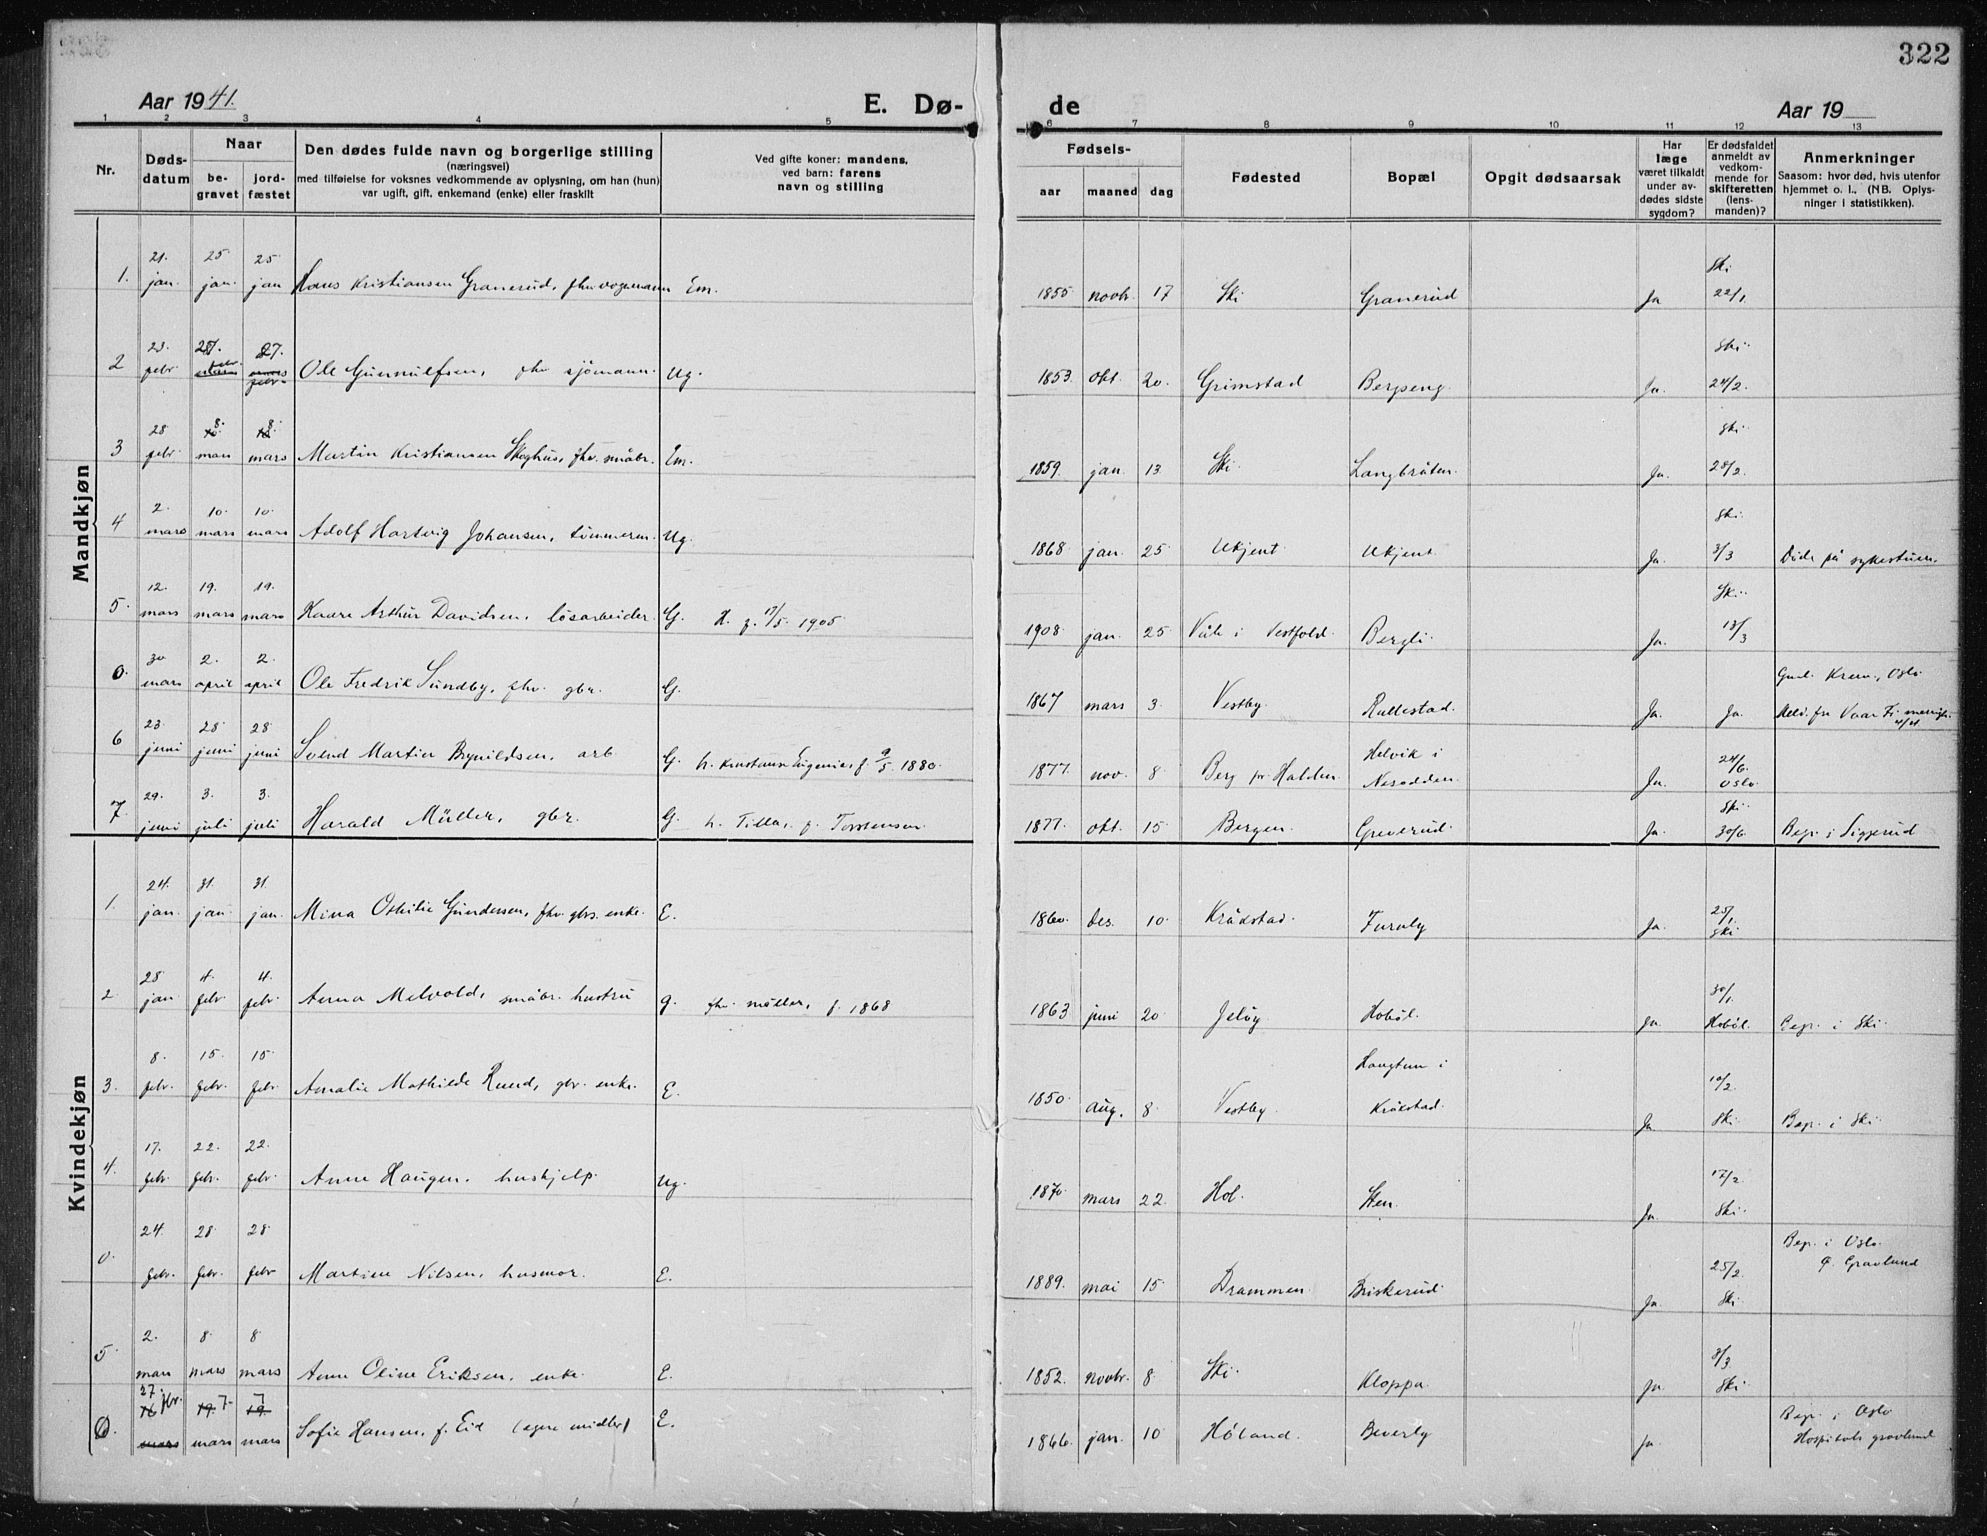 322
Aar 1941.
E. Dø-
de
Aar 19
1 2 3 4 5 6 7 8 9 10 11 12 13
Nr.
Døds-
datum
Naar
be-
gravet
jord-
fæstet
Den dødes fulde navn og borgerlige stilling
(næringsvei)
med tilføielse for voksnes vedkommende av oplysning, om han (hun)
var ugift, gift, enkemand (enke) eller fraskilt
Ved gifte koner: mandens,
ved barn: farens
navn og stilling
Fødsels-
aar
maaned
dag
Fødested
Bopæl
Opgit dødsaarsak
Har
læge
været tilkaldt
under av-
dødes sidste
sygdom?
Er dødsfaldet
anmeldt av
vedkom-
mende for
skifteretten
(lens-
manden)?
Anmerkninger
Saasom: hvor død, hvis utenfor
hjemmet o. l., (NB. Oplys-
ninger i statistikken).
Mandkjøn
1. 21. jan. 25 jan. 25 jan Hans Kristiansen Granerud, fhv. vognmann Em. 1855 novbr. 17 Ski Granerud Ja Ski 22/1.
2 23. febr. 27. febr. 27. febr. Ole Gunnulfsen, fhv. sjömann. Ug. 1853. okt. 20. Grimstad Bergseng. Ja. Ski. 24/2.
3 28 febr. 8. mars 8. mars Martin Kristiansen Skoghus, fhv. småbr. Em. 1859. jan. 13. Ski. Langbråten. Ja. Ski. 28/2.
4 2. mars 10. mars 10. mars Adolf Hartvig Johansen, tömmerm. Ug. 1868 jan. 25 Ukjent Ukjent Ja. Ski. 3/3 Döde på sykestuen.
5. 12. mars 19. mars 19. mars Kaare Arthur Davidsen, lösarbeider. G. H. f. 17/5. 1905 1908. jan. 25 Våle i Vestfold. Bergli. Ja. Ski. 13/3
0. 30 mars 2. april 2. april Ole Fredrik Sundby, fhv. gbr. G. 1867 mars 3. Vestby. Rullestad. Ja. Ja. Krem., Oslo
Meld. fra Vaar Fr. menigh.
6 23. juni 28 juni 28 juni Svend Martin Brynildsen, arb G. h. Konstanse Eugenie, f. 9/5. 1880. 1877. nov. 8 Berg pr Halden Helvik i
Nesodden. Ja. 24/6. Oslo
7. 29. juni 3. juli 3. juli Harald Müller, gbr. G. h. Tilla, f. Torstensen 1877. okt. 15 Bergen. Greverud. Ja. Ski. 30/6. Begr. i Siggerud
Kvindekjøn
1. 24. jan. 31. jan. 31. jan. Mina Othilie Gundersen, fhv. gbrs. enke. E. 1860. des. 10 Kråkstad. Furuly Ja. 25/1. Ski.
2 28 jan 4. febr. 4. febr. Anna Melvold, småbr. hustru g. fhv. möller, f. 1868 1863 juni 20. Jelöy. Hobøl. Ja 30/1. Hobøl. Begr. i Ski.
3. 8. febr. 15. febr. 15. febr. Amalie Mathilde Ruud, gbr. enke. E. 1850. aug. 8 Vestby. Haugtun i
Kråkstad. Ja 10/2. Ski. Begr. i Ski.
4. 17. febr. 22. febr. 22. febr. Anne Haugen, hushjelp. Ug. 1870 mars 22. Hol. Sten. Ja. 17/2 Ski.
0. 24. febr. 28 febr. 28 febr Martine Nilsen, husmor. E. 1889. mai 15 Drammen. Briskerud. Ja. 25/2. Ski. Begr. i Oslo.
Gravlund
5 2. mars 8. mars 8 mars Anne Oline Eriksen, enke E. 1852. novbr. 8. Ski. Kloppa. Ja 8/3. Ski.
0. 27. fbr. 16 mars 19. 7 mars 7 19. mars Sofie Hansen, f. Eid (egne midler) E. 1866. jan. 10 Høland. Beverly Ja. Begr. i Oslo
Hospitals gravlund